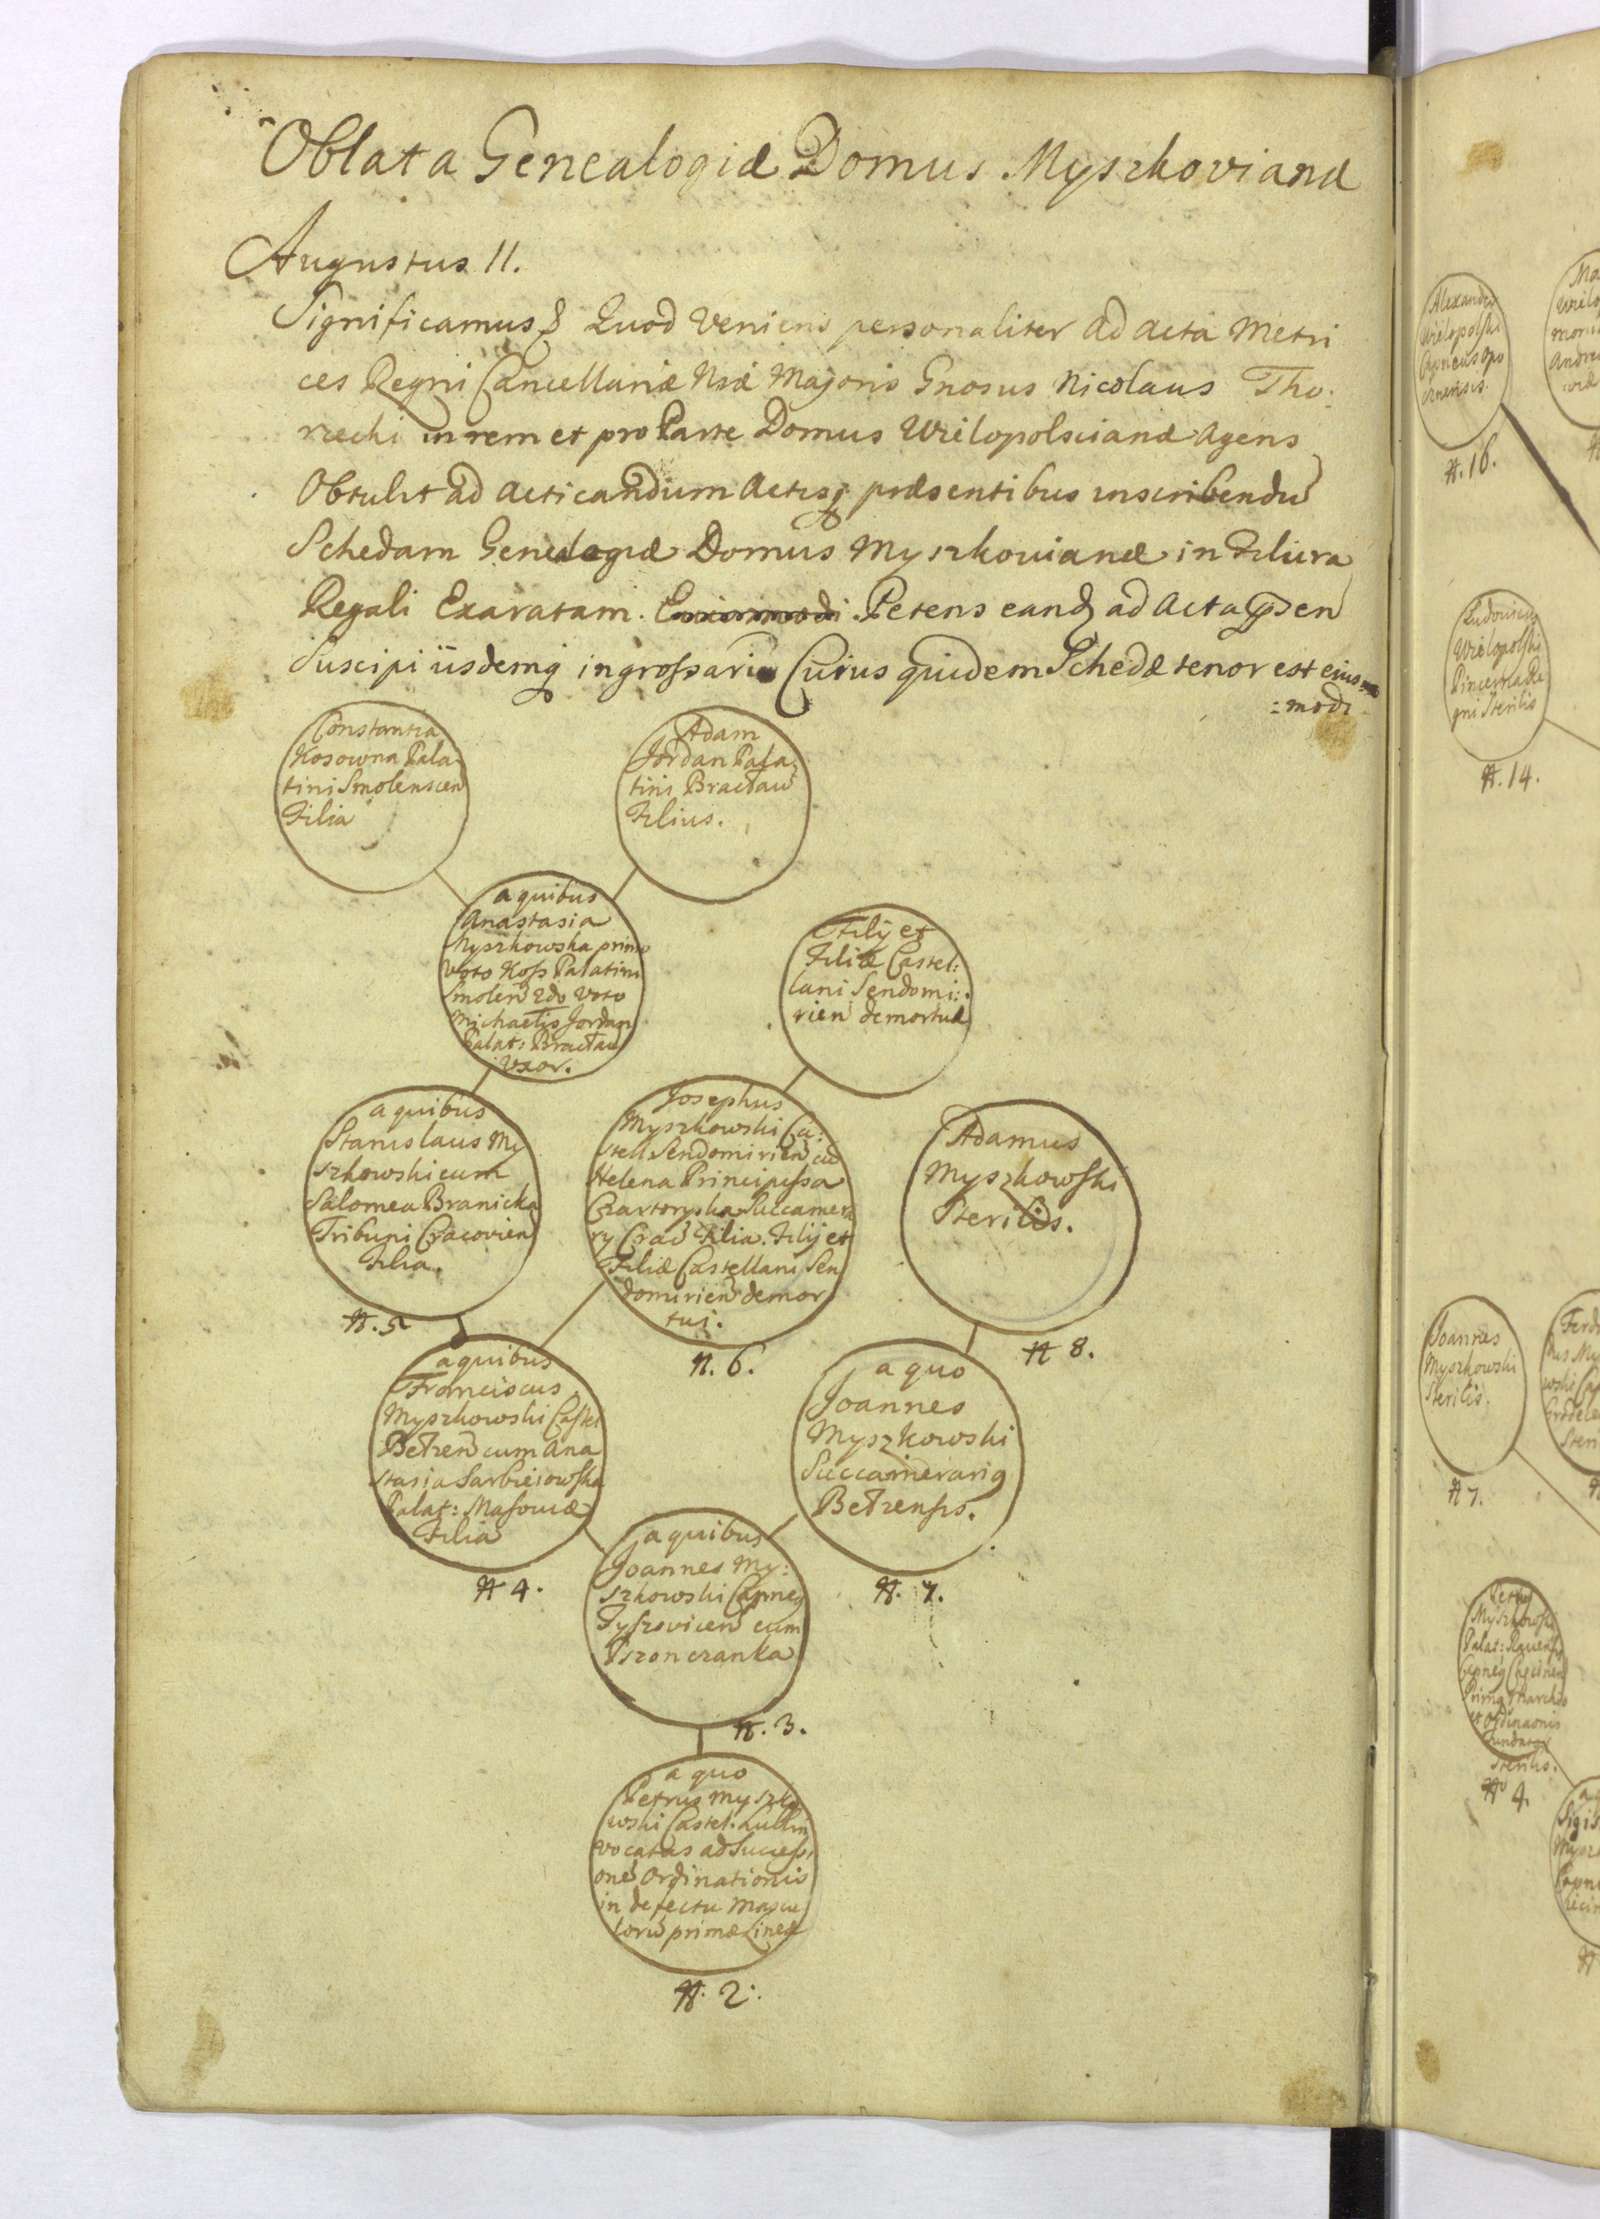 Oblata Genealogiæ Domus Myszkovianæ
Augustus II.
Significamus & Quod Veniens personaliter ad acta Metri
ces Regni Cancellariæ Nræ Majoris Gnosus Nicolaus Tho:
rzecki in rem et pro Parte Domus Wielopolscianæ agens
Obtulit ad acticandum actisq præsentibus inscribendū
Schedam Genealogiæ Domus Myszkouianæ in Filura
Regali Exaratam. Petens eandē ad acta
Suscipi iisdemq ingrossari Cuius quidem Schedæ tenor est eius=
=modi
Constantia
Kosowna Pala
tini Smolenscen
Filia
Adam
Jordan Pala:
tini Bracław
Filius.
a quibus
Anastasia
Myszkowska primo
voto Koss Palatini
Smolen 2do voto
Michaelis Jordan
Palat: Bracław
Uxor.
Filij et
Filiæ Castel:
lani Sendomi:
rien demortuæ
a quibus
Stanislaus My
szkowski cum
Salomea Branicka
Tribuni Cracovien
Filia.
N. 5
Josephus
Myszkowski Ca:
stell. Sendomirien cū
Helena Principissa
Czartoryska Succamera
ry Crac Filia. Filij et
Filiæ Castellani Sen
domirien demor
tui.
N. 6.
Adamus
Myszkowski
Sterilis.
N 8.
a quibus
Franciscus
Myszkowski Castel
Bełzen cum Ana
stasia Sarbieiowska
Palat: Masouiæ
Filia
N 4.
a quo
Joannes
Myszkowski
Succamerarig
Bełzensis.
N. 7.
a quibus
Joannes My:
szkowski Capneg
Tyszovicen cum
Pszonczanka
N. 3.
a quo
Petrus Myszko
wski Castel. Lublin
vocatus ad Successi
onē Ordinationis
in defectu Mascu
lorū primæ Lineæ
N. 2.
Alexander
Wielopolski
Capneus Opo
cznensis.
N. 16.
Ludovicus
Wielopolski
Pincerna Re
gni Sterilis
N. 14.
Joannes
Myszkowski
Sterilis.
N 7.
Petrus
Myszkowski
Palat: Rauensis
Sterilis.
N 4.